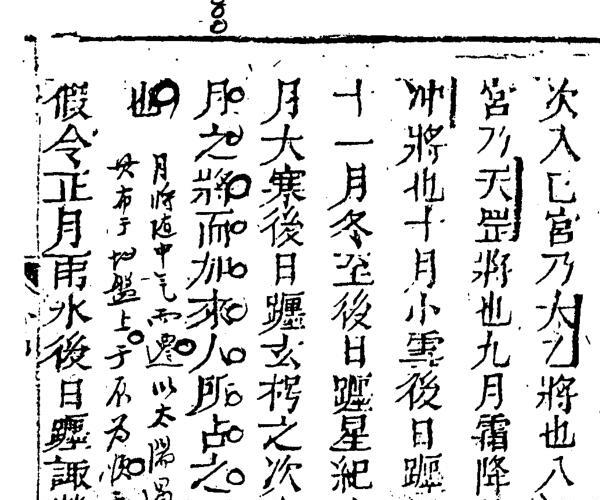 次入巳宮乃太乙將也八
宮乃天罡將也九月霜降
冲將也十月小雪後日躔
十一月冬至後日躔星紀
月大寒後日躔玄枵之次
月之將而加來人所占之
也
月將隨中气而遷以太陽
毋布于地盤上于
假令正月雨水後日躔諏